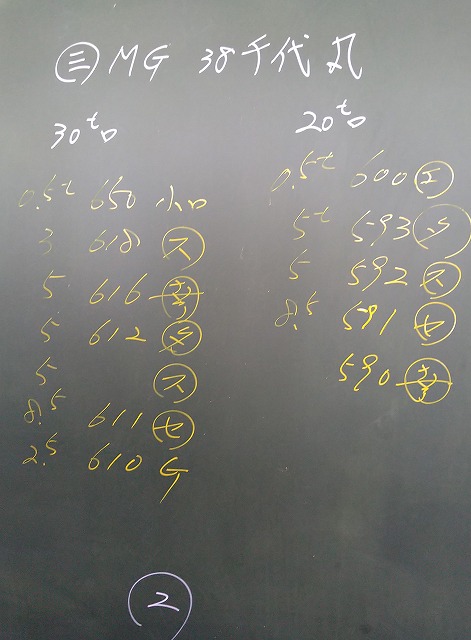 ㊂ MG 38千代丸
30tロ
0.5t 650 小口
3 618 ス
5 616
5 612
5 ス
8.5 611 セ
2.5 610 G
20tロ
0.5t 600 エ
5t 593
5 592 ス
8.5 591 セ
590
2